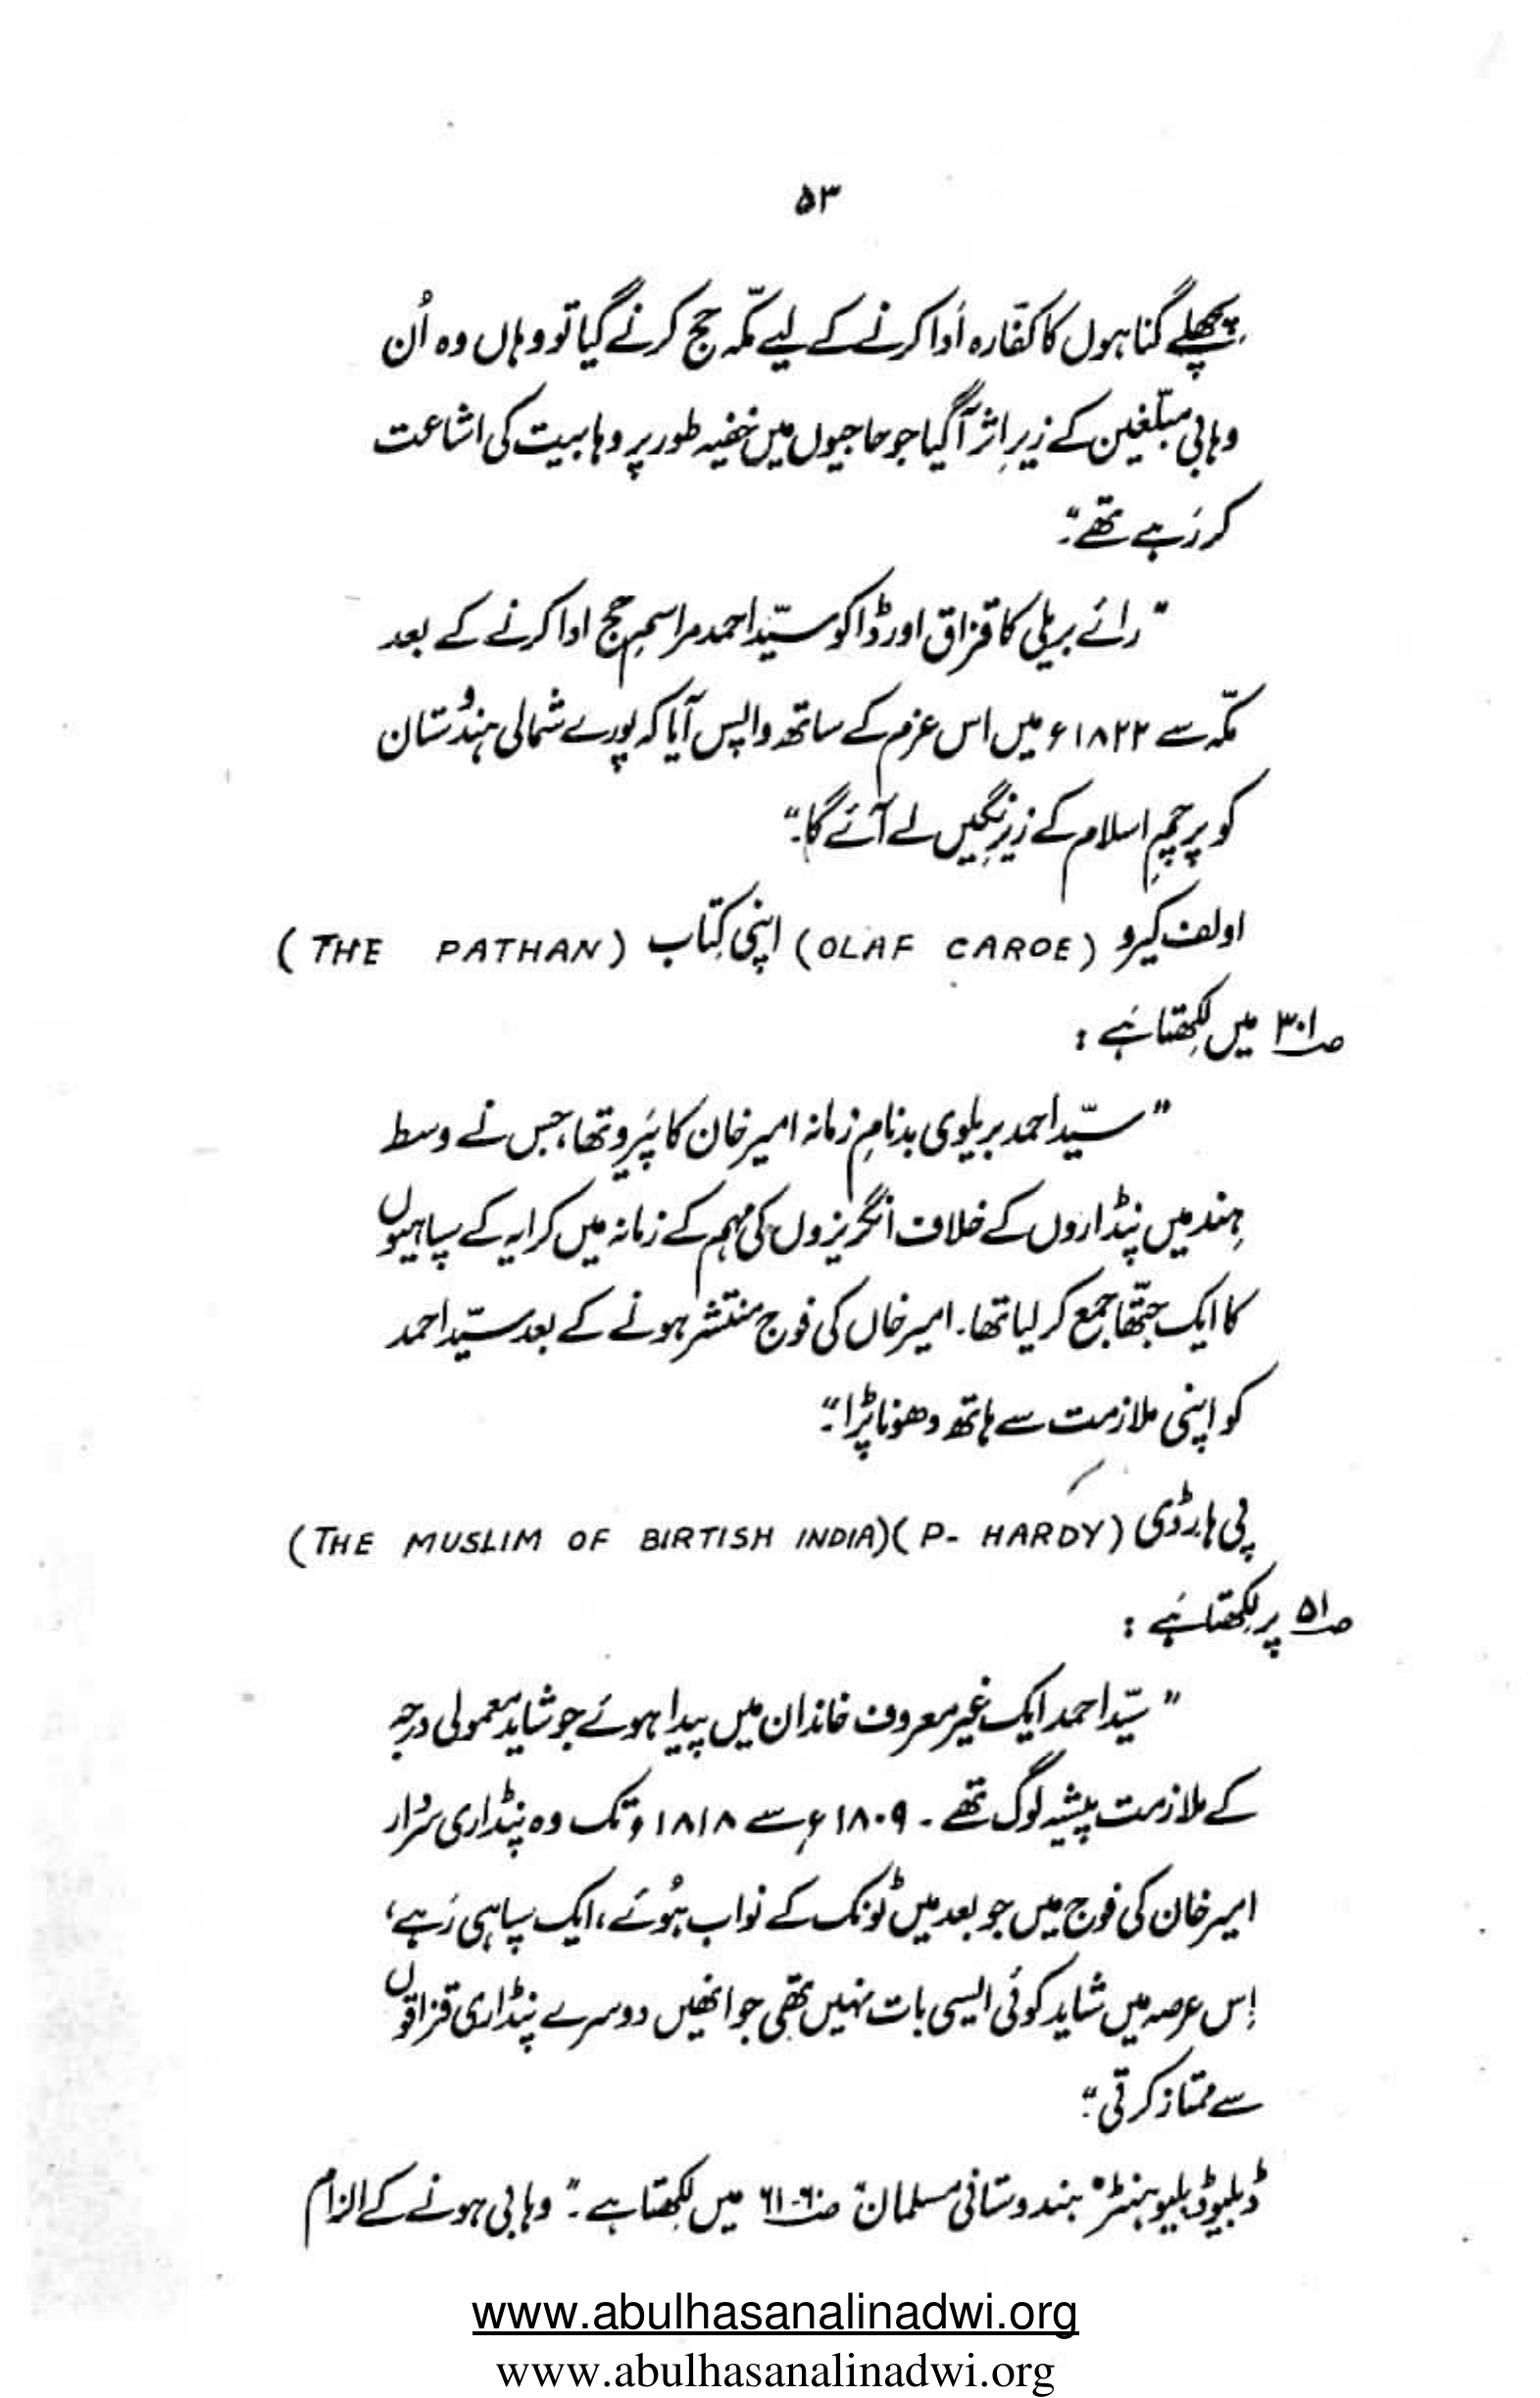 ۵۳
پچھلے گناہوں کا کفّارہ اَدا کرنے کے لیے مکّہ حج کرنے گیا تو وہاں وہ اُن
وہابی مبلّغین کے زیرِ اثر آگیا جو حاجیوں میں خفیہ طور پر وہابیت کی اشاعت
کر رَہے تھے۔"
"رائے بریلی کا قزاق اور ڈاکو سیّد احمد مراسمِ حج ادا کرنے کے بعد
مکّہ سے ۱۸۲۲ء میں اس عزم کے ساتھ واپس آیا کہ پورے شمالی ہندُوستان
کو پرچمِ اسلام کے زیرِ نگیں لے آئے گا۔"
اولف کیرو (OLAF CAROE) اپنی کتاب (THE PATHAN)
صـ۳۰۱ میں لکھتا ہَے :
"سیّد احمد بریلوی بدنامِ زمانہ امیر خان کا پَیرو تھا، جس نے وسط
ہِند میں پنڈاروں کے خلاف انگریزوں کی مہم کے زمانہ میں کرایہ کے سپاہیوں
کا ایک جتّھا جمع کر لیا تھا۔ امیر خاں کی فوج منتشر ہونے کے بعد سیّد احمد
کو اپنی ملازمت سے ہاتھ دھونا پڑا۔"
پی ہارڈی (P- HARDY) (THE MUSLIM OF BIRTISH INDIA)
صـ۵۱ پر لکھتا ہَے :
"سیّد احمد ایک غیر معروف خاندان میں پیدا ہوئے جو شاید معمولی درجہ
کے ملازمت پیشہ لوگ تھے ۔ ۱۸۰۹ء سے ۱۸۱۸ء تک وہ پنڈاری سردار
امیر خان کی فوج میں جو بعد میں ٹونک کے نواب ہُوئے، ایک سپاہی رَہے،
اِس عرصہ میں شاید کوئی ایسی بات نہیں تھی جو انھیں دوسرے پنڈاری قزاقوں
سے ممتاز کرتی۔"
ڈبلیو ڈبلیو ہنٹر "ہندوستانی مسلمان" صـ۶۰-۶۱ میں لکھتا ہے ۔ "وہابی ہونے کے الزام
www.abulhasanalinadwi.org
www.abulhasanalinadwi.org